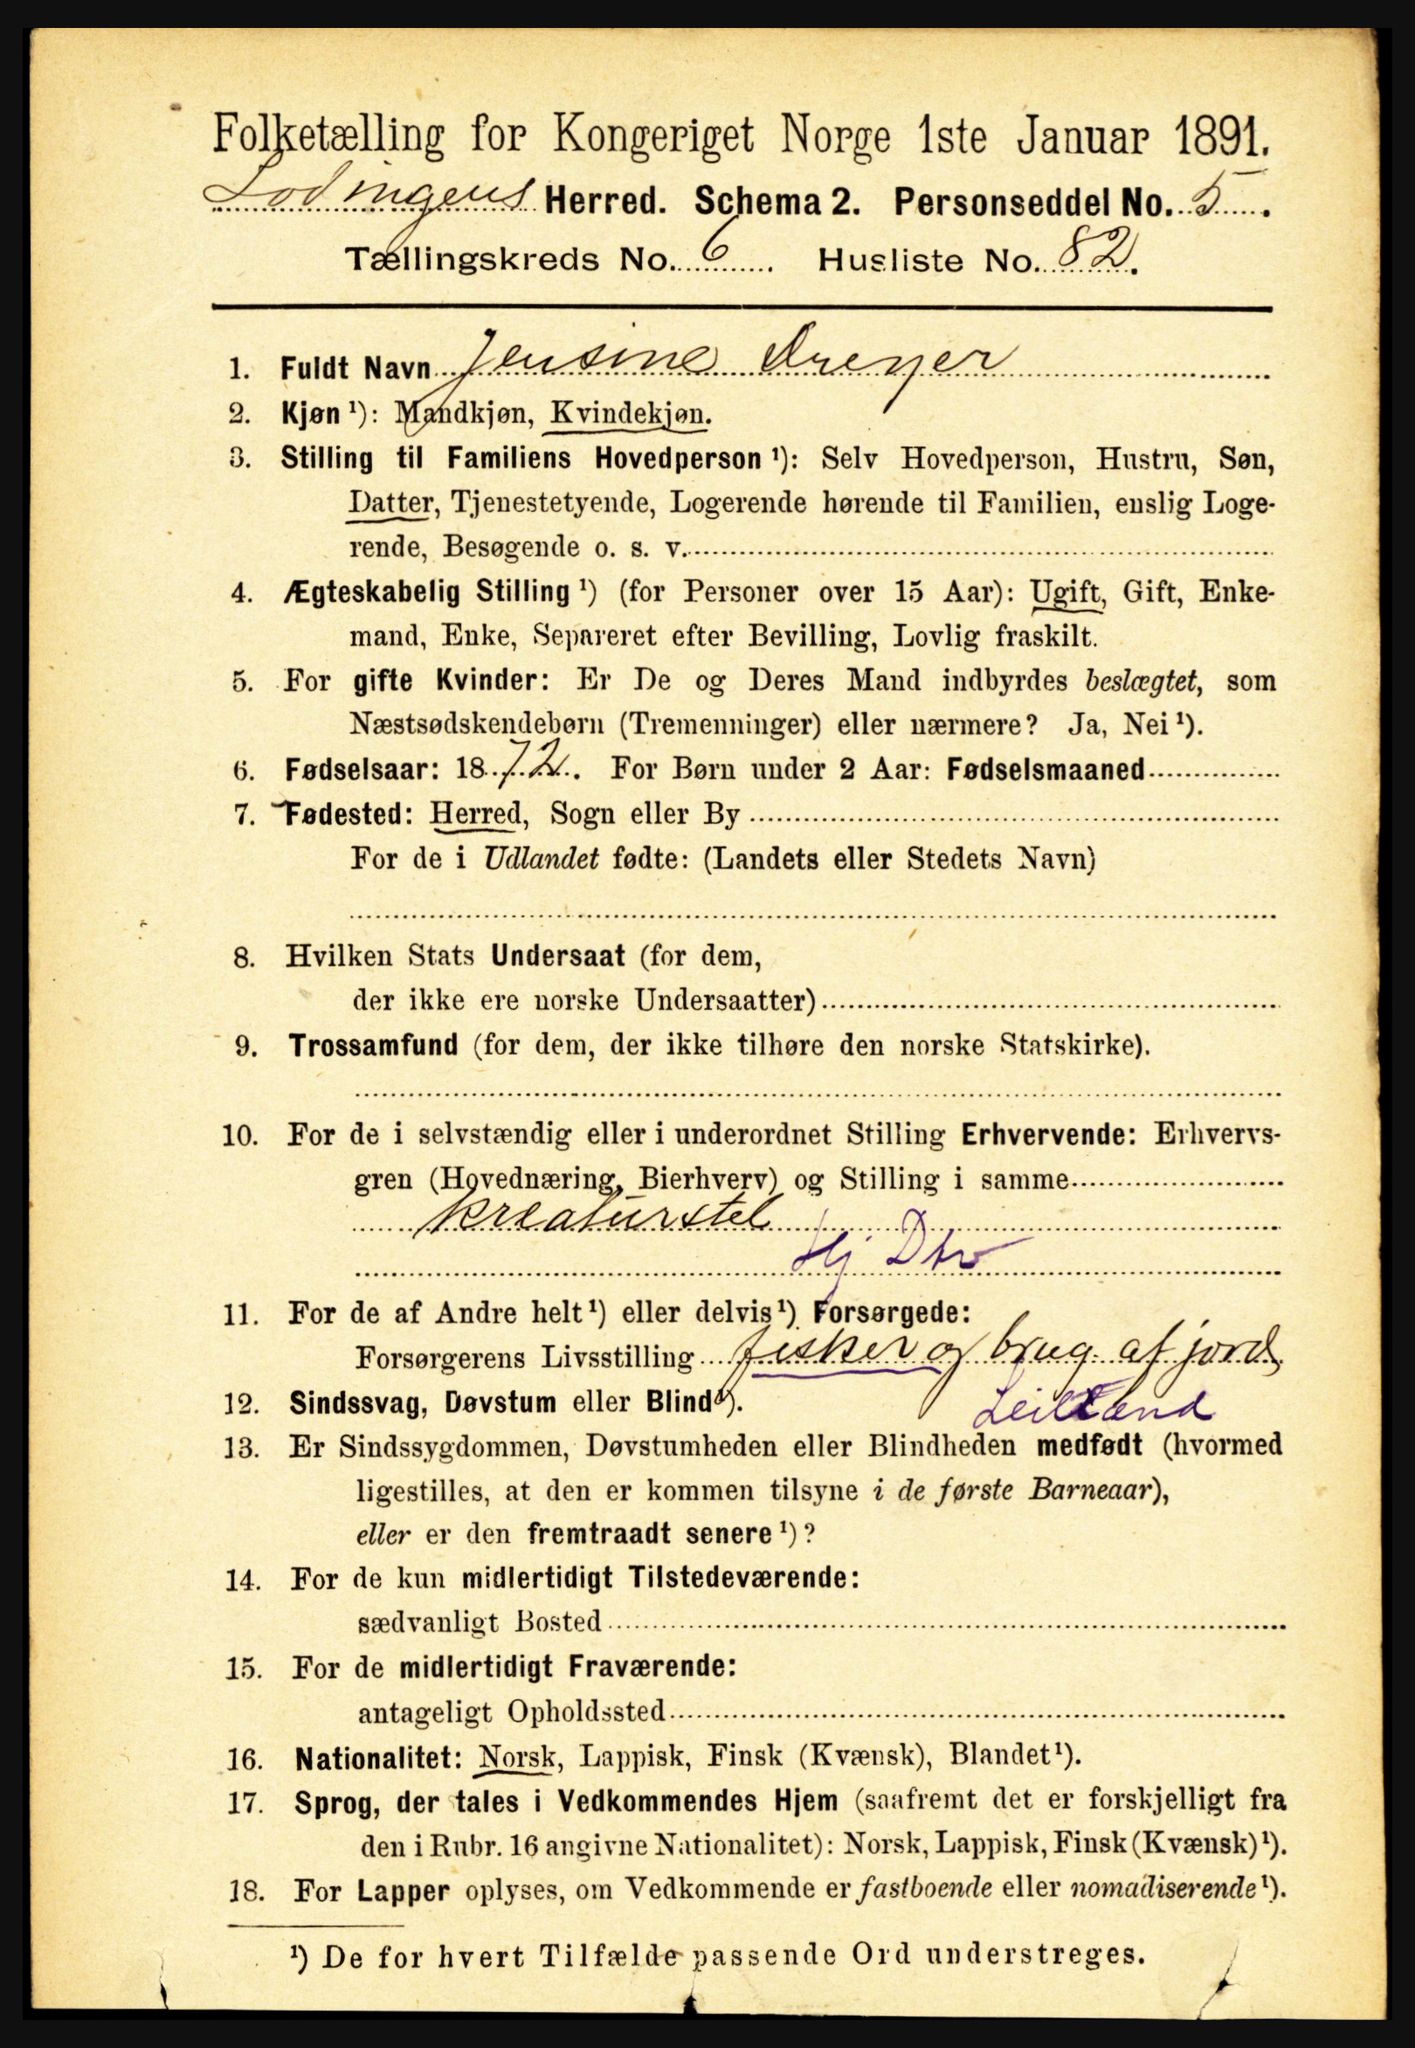 Folketælling for Kongeriget Norge 1ste Januar 1891.
Lodingens Herred. Schema 2. Personseddel No. 5.
Tællingskreds No. 6. Husliste No. 82.
1. Fuldt Navn Jensine Dreyer
2. Kjøn ¹): Mandkjøn, Kvindekjøn.
3. Stilling til Familiens Hovedperson ¹): Selv Hovedperson, Hustru, Søn,
Datter, Tjenestetyende, Logerende hørende til Familien, enslig Loge-
rende, Besøgende o. s. v.
4. Ægteskabelig Stilling ¹) (for Personer over 15 Aar): Ugift, Gift, Enke-
mand, Enke, Separeret efter Bevilling, Lovlig fraskilt.
5. For gifte Kvinder: Er De og Deres Mand indbyrdes beslægtet, som
Næstsødskendebørn (Tremenninger) eller nærmere? Ja, Nei ¹).
6. Fødselsaar: 1872. For Børn under 2 Aar: Fødselsmaaned
7. Fødested: Herred, Sogn eller By
For de i Udlandet fødte: (Landets eller Stedets Navn)
8. Hvilken Stats Undersaat (for dem,
der ikke ere norske Undersaatter)
9. Trossamfund (for dem, der ikke tilhøre den norske Statskirke).
10. For de i selvstændig eller i underordnet Stilling Erhvervende: Erhvervs-
gren (Hovednæring, Bierhverv) og Stilling i samme
kreaturstel
Hj Dtr
11. For de af Andre helt ¹) eller delvis ¹) Forsørgede:
Forsørgerens Livsstilling fisker og brug af jord
12. Sindssvag, Døvstum eller Blind ¹).
Leilænd
13. Er Sindssygdommen, Døvstumheden eller Blindheden medfødt (hvormed
ligestilles, at den er kommen tilsyne i de første Barneaar),
eller er den fremtraadt senere ¹)?
14. For de kun midlertidigt Tilstedeværende:
sædvanligt Bosted
15. For de midlertidigt Fraværende:
antageligt Opholdssted
16. Nationalitet: Norsk, Lappisk, Finsk (Kvænsk), Blandet ¹).
17. Sprog, der tales i Vedkommendes Hjem (saafremt det er forskjelligt fra
den i Rubr. 16 angivne Nationalitet): Norsk, Lappisk, Finsk (Kvænsk) ¹).
18. For Lapper oplyses, om Vedkommende er fastboende eller nomadiserende ¹).
¹) De for hvert Tilfælde passende Ord understreges.